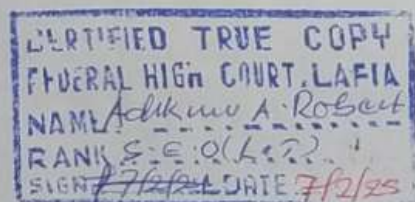 CERTIFIED TRUE COPY
FEDERAL HIGH COURT, LAFIA
NAME A. Robert
RANK S.E.O (L&T)
SIGN 7/2/25 DATE 7/2/25